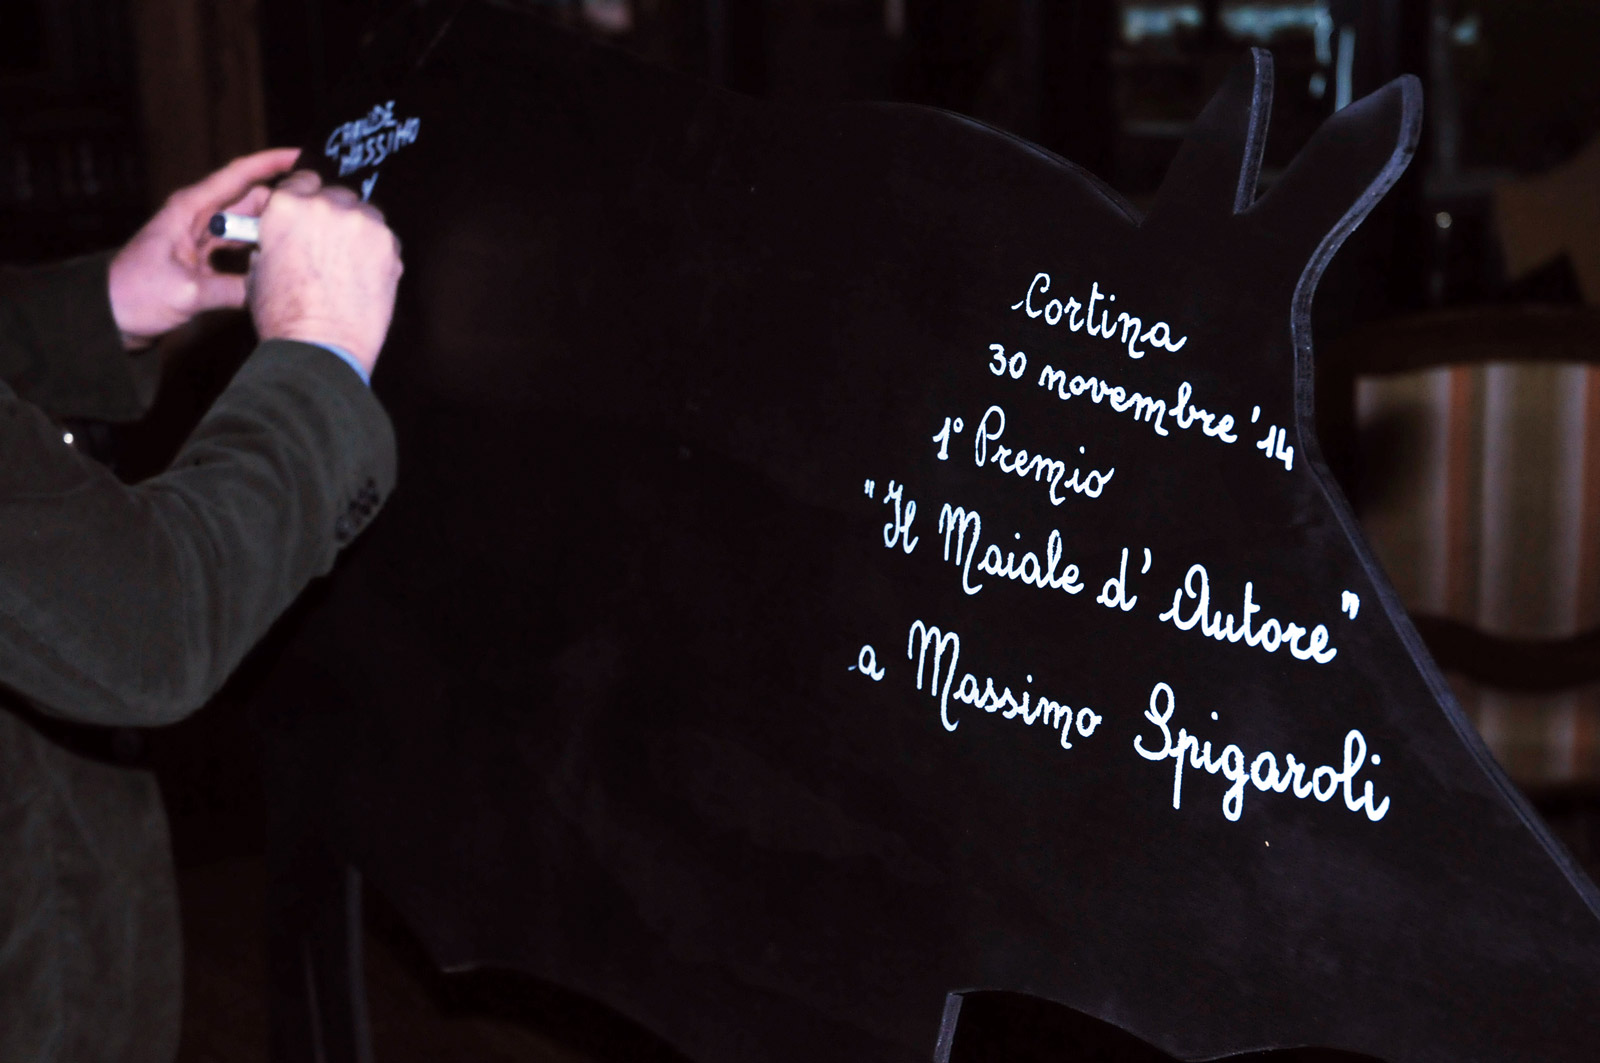 GRANDE
MASSIMO
Cortina
30 novembre '14
1° Premio
"Il Maiale d'Autore"
a Massimo Spigaroli